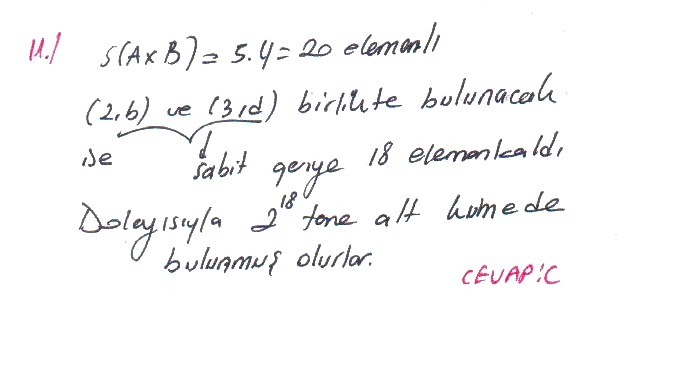 11./ S(AxB) = 5.4 = 20 elemanlı
(2,b) ve (3,d) birlikte bulunacak
ise sabit geriye 18 eleman kaldı
Dolayısıyla 2^18 tane alt kümede
bulunmuş olurlar.
CEVAP:C